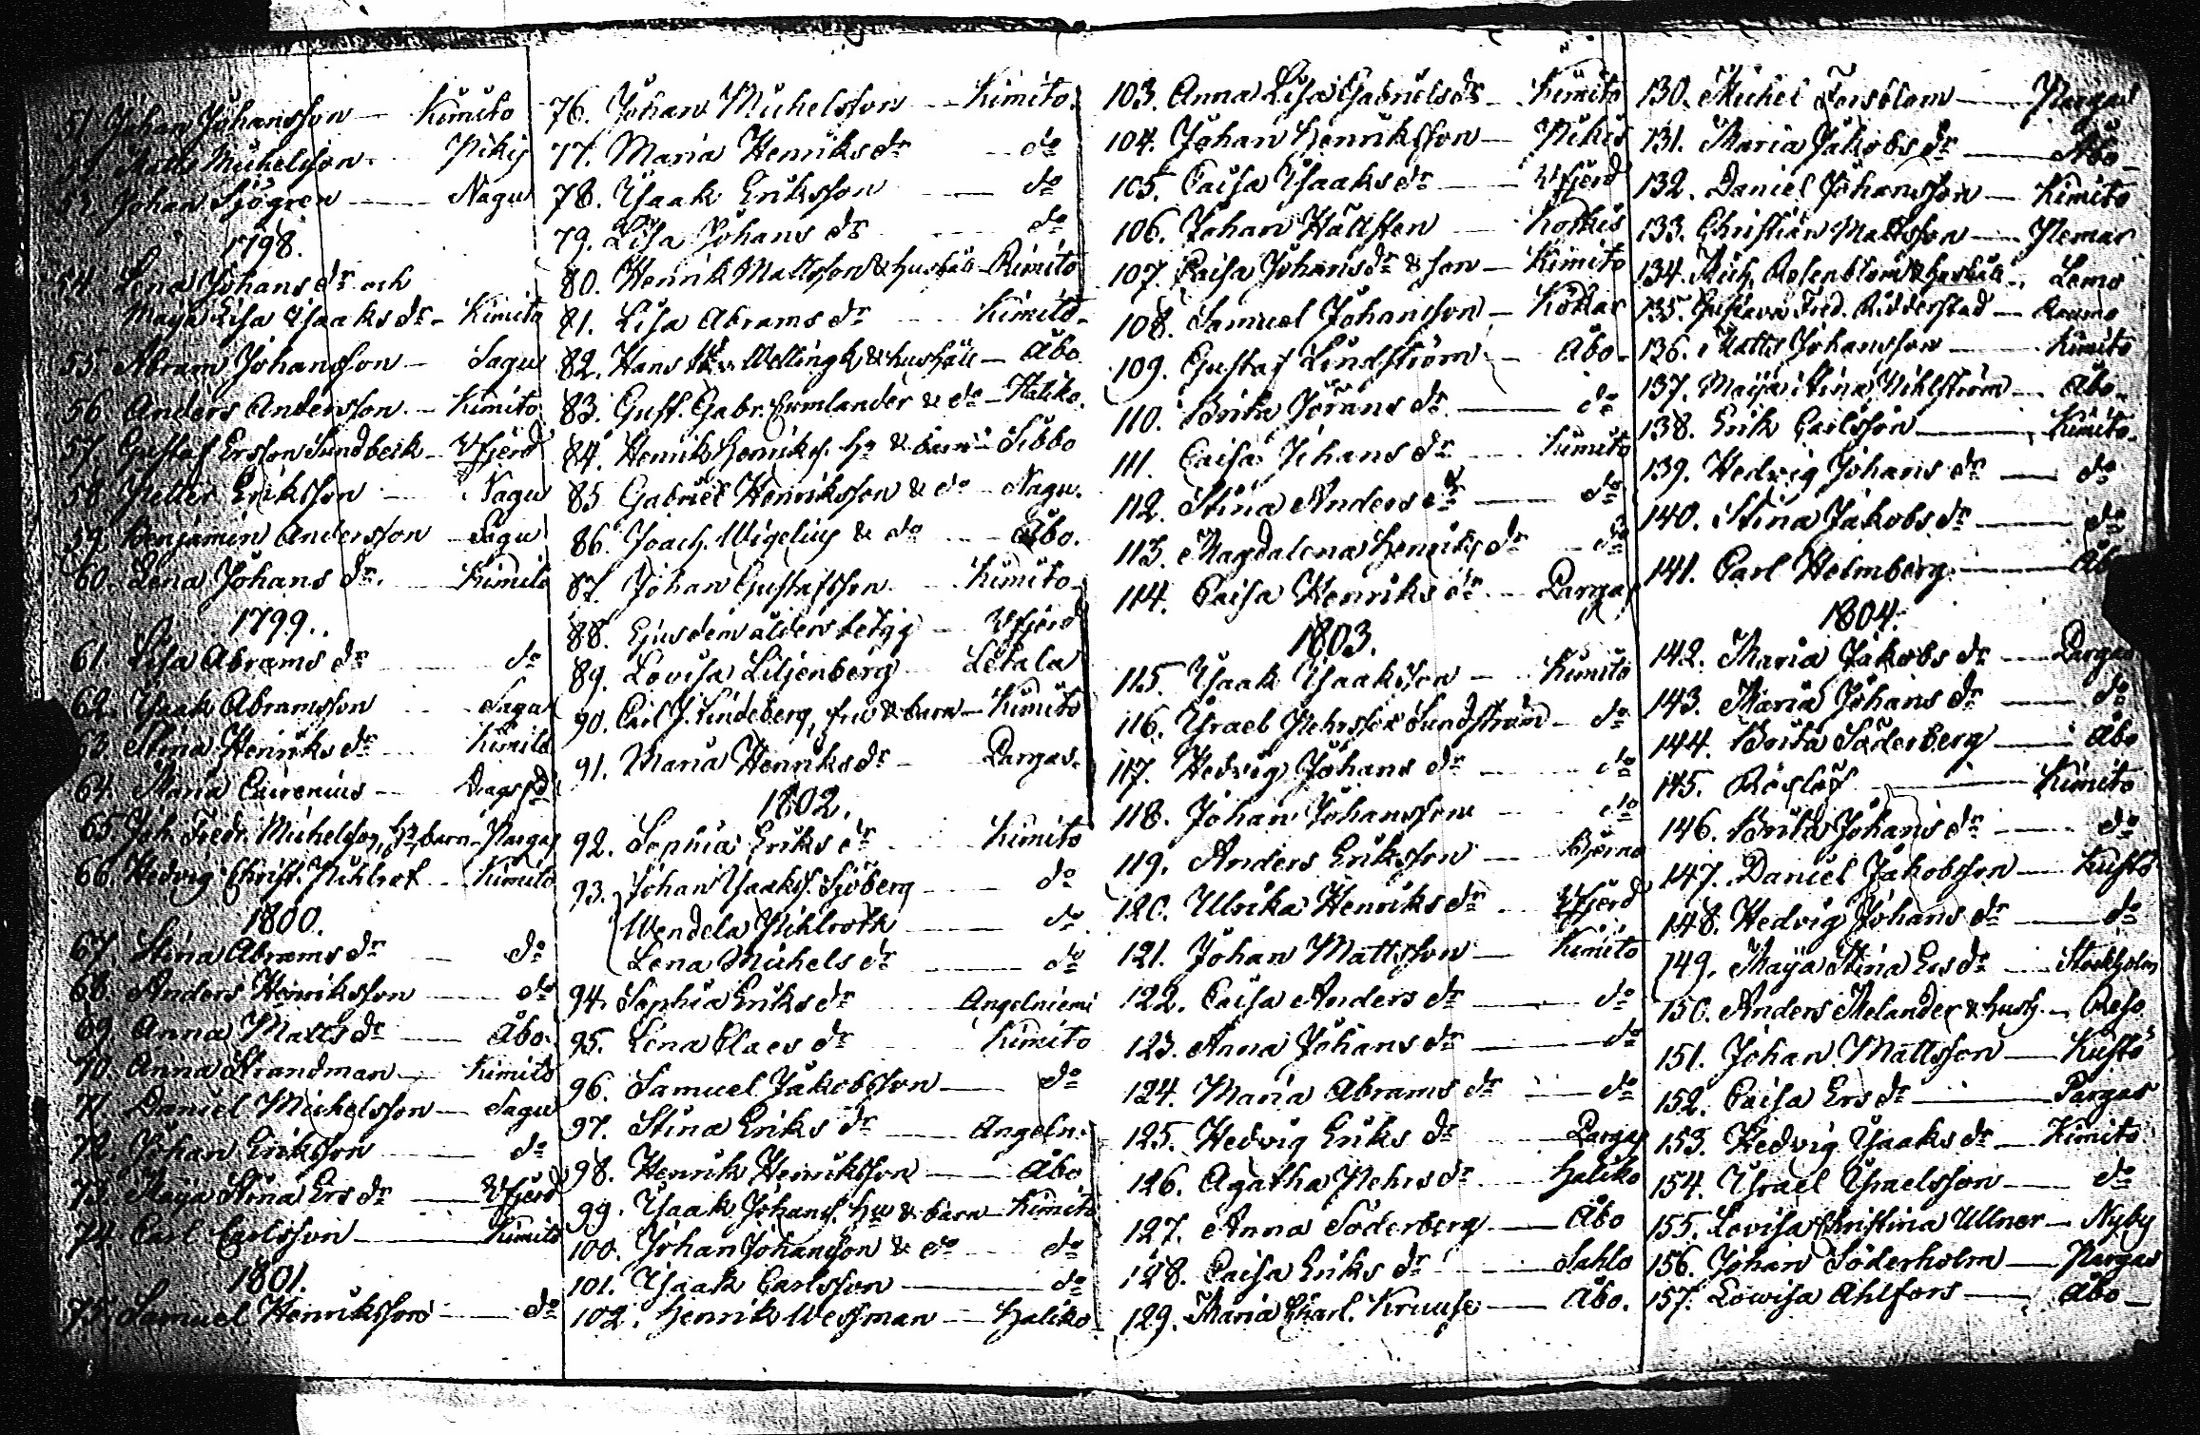 51. Johan Johansson — Kimito
52. Matts Michelsson — Pikis
53. Johan Sjögren — Nagu
1798.
54. Lena Johans dr och
Maja Lisa Isaaks dr — Kimito
55. Abram Johansson — Sagu
56. Anders Andersson — Kimito
57. Gustaf Ersson Sundbeck — Vfjerd
58. Petter Eriksson — Nagu
59. Benjamin Andersson — Sagu
60. Lena Johans dr. — Kimito
1799.
61. Lisa Abrams dr — do
62. Isaak Abramsson — Sagu
63. Stina Henriks dr — Kimito
64. Maria Eurenius — Dragsfd
65. Joh. Fredr. Michelsson, hu, barn — Pargas
66. Hedvig Christ. Pihlrot — Kimito
1800.
67. Stina Abrams dr — do
68. Anders Henriksson — do
69. Anna Matts dr — Åbo
70. Anna Strandman — Kimito
71. Daniel Michelsson — Sagu
72. Johan Eriksson — do
73. Maja Stina Ers dr — Vfjerd
74. Carl Carlsson — Kimito
1801.
75. Samuel Henriksson — do
76. Johan Michelsson — Kimito
77. Maria Henriks dr — do
78. Isaak Eriksson — do
79. Lisa Johans dr — do
80. Henrik Mattsson & hushåll — Rimito
81. Lisa Abrams dr — Kimito
82. Hans Hr v. Wellingk & hushåll — Åbo
83. Gust. Gabr. Ermlander & do — Haliko.
84. Henrik Henrikss. hu & barn — Sibbo
85. Gabriel Henriksson & do — Nagu.
86. Joach. Wigelius & do — Åbo.
87. Johan Gustafsson — Kimito
88. Ejusdem ålders betyg — Vfjerd
89. Lovisa Liljenberg — Letala
90. Carl J. Lindeberg, fru & barn — Kimito
91. Maria Henriks dr — Pargas.
1802.
92. Sophia Eriks dr — Kimito
93. Johan Isaakss. Sjöberg — do
Wendela Pihlroth — do
Lena Michels dr — do
94. Sophia Eriks dr — Angelniemi
95. Lena Claes dr — Kimito
96. Samuel Jakobsson — do
97. Stina Eriks dr — Angeln.
98. Henrik Henriksson — Åbo
99. Isaak Johanss. hu & barn — Kimito
100. Johan Johansson & do — do
101. Isaak Carlsson — do
102. Henrik Wessman — Haliko
103. Anna Lisa Gabriels dr — Kimito
104. Johan Henriksson — Pikis
105. Caisa Isaaks dr — Vfjerd
106. Johan Hällsten — Korkis
107. Caisa Johans dr & son — Kimito
108. Samuel Johansson — Kökar
109. Gustaf Lindström — Åbo
110. Brita Jörans dr — do
111. Caisa Johans dr — Kimito
112. Stina Anders dr — do
113. Magdalena Henriks dr — do
114. Caisa Henriks dr — Pargas
1803.
115. Isaak Isaaksson — Kimito
116. Israel Pehrsson Sundström — do
117. Hedvig Johans dr — do
118. Johan Johansson — do
119. Anders Eriksson — Bjerno
120. Ulrika Henriks dr — Vfjerd
121. Johan Mattsson — Kimito
122. Caisa Anders dr — do
123. Anna Johans dr — do
124. Maria Abrams dr — do
125. Hedvig Eriks dr — Pargas
126. Agatha Pehrs dr — Haliko
127. Anna Söderberg — Åbo
128. Caisa Eriks dr — Sahlo
129. Maria Charl. Kruuse — Åbo.
130. Michel Forsblom — Pargas
131. Maria Jakobs dr — Åbo
132. Daniel Johansson — Kimito
133. Christian Mattsson — Pemar
134. Mich. Rosenblom & hushåll — Lemo
135. Gustava Fred. Ridderstad — Raumo
136. Matts Johansson — Kimito
137. Maija Stina Pihlström — Åbo
138. Erik Carlsson — Kimito
139. Hedvig Johans dr — do
140. Stina Jakobs dr — do
141. Carl Helmberg — Åb
1804.
142. Maria Jakobs dr — Pargas
143. Maria Johans dr — do
144. Brita Söderberg — Åbo
145. Röslöf — Kimito
146. Brita Johans dr — do
147. Daniel Jakobsson — Kustö
148. Hedvig Johans dr — do
149. Maja Stina Ers dr — Stockholm
150. Anders Melander & hush. — Reso
151. Johan Mattsson — Kustö
152. Caisa Ers dr — Pargas
153. Hedvig Isaaks dr — Kimito
154. Israel Israelsson — do
155. Lovisa Christina Ullner — Nyby
156. Johan Söderholm — Pargas
157. Lowisa Ahlfors — Åbo